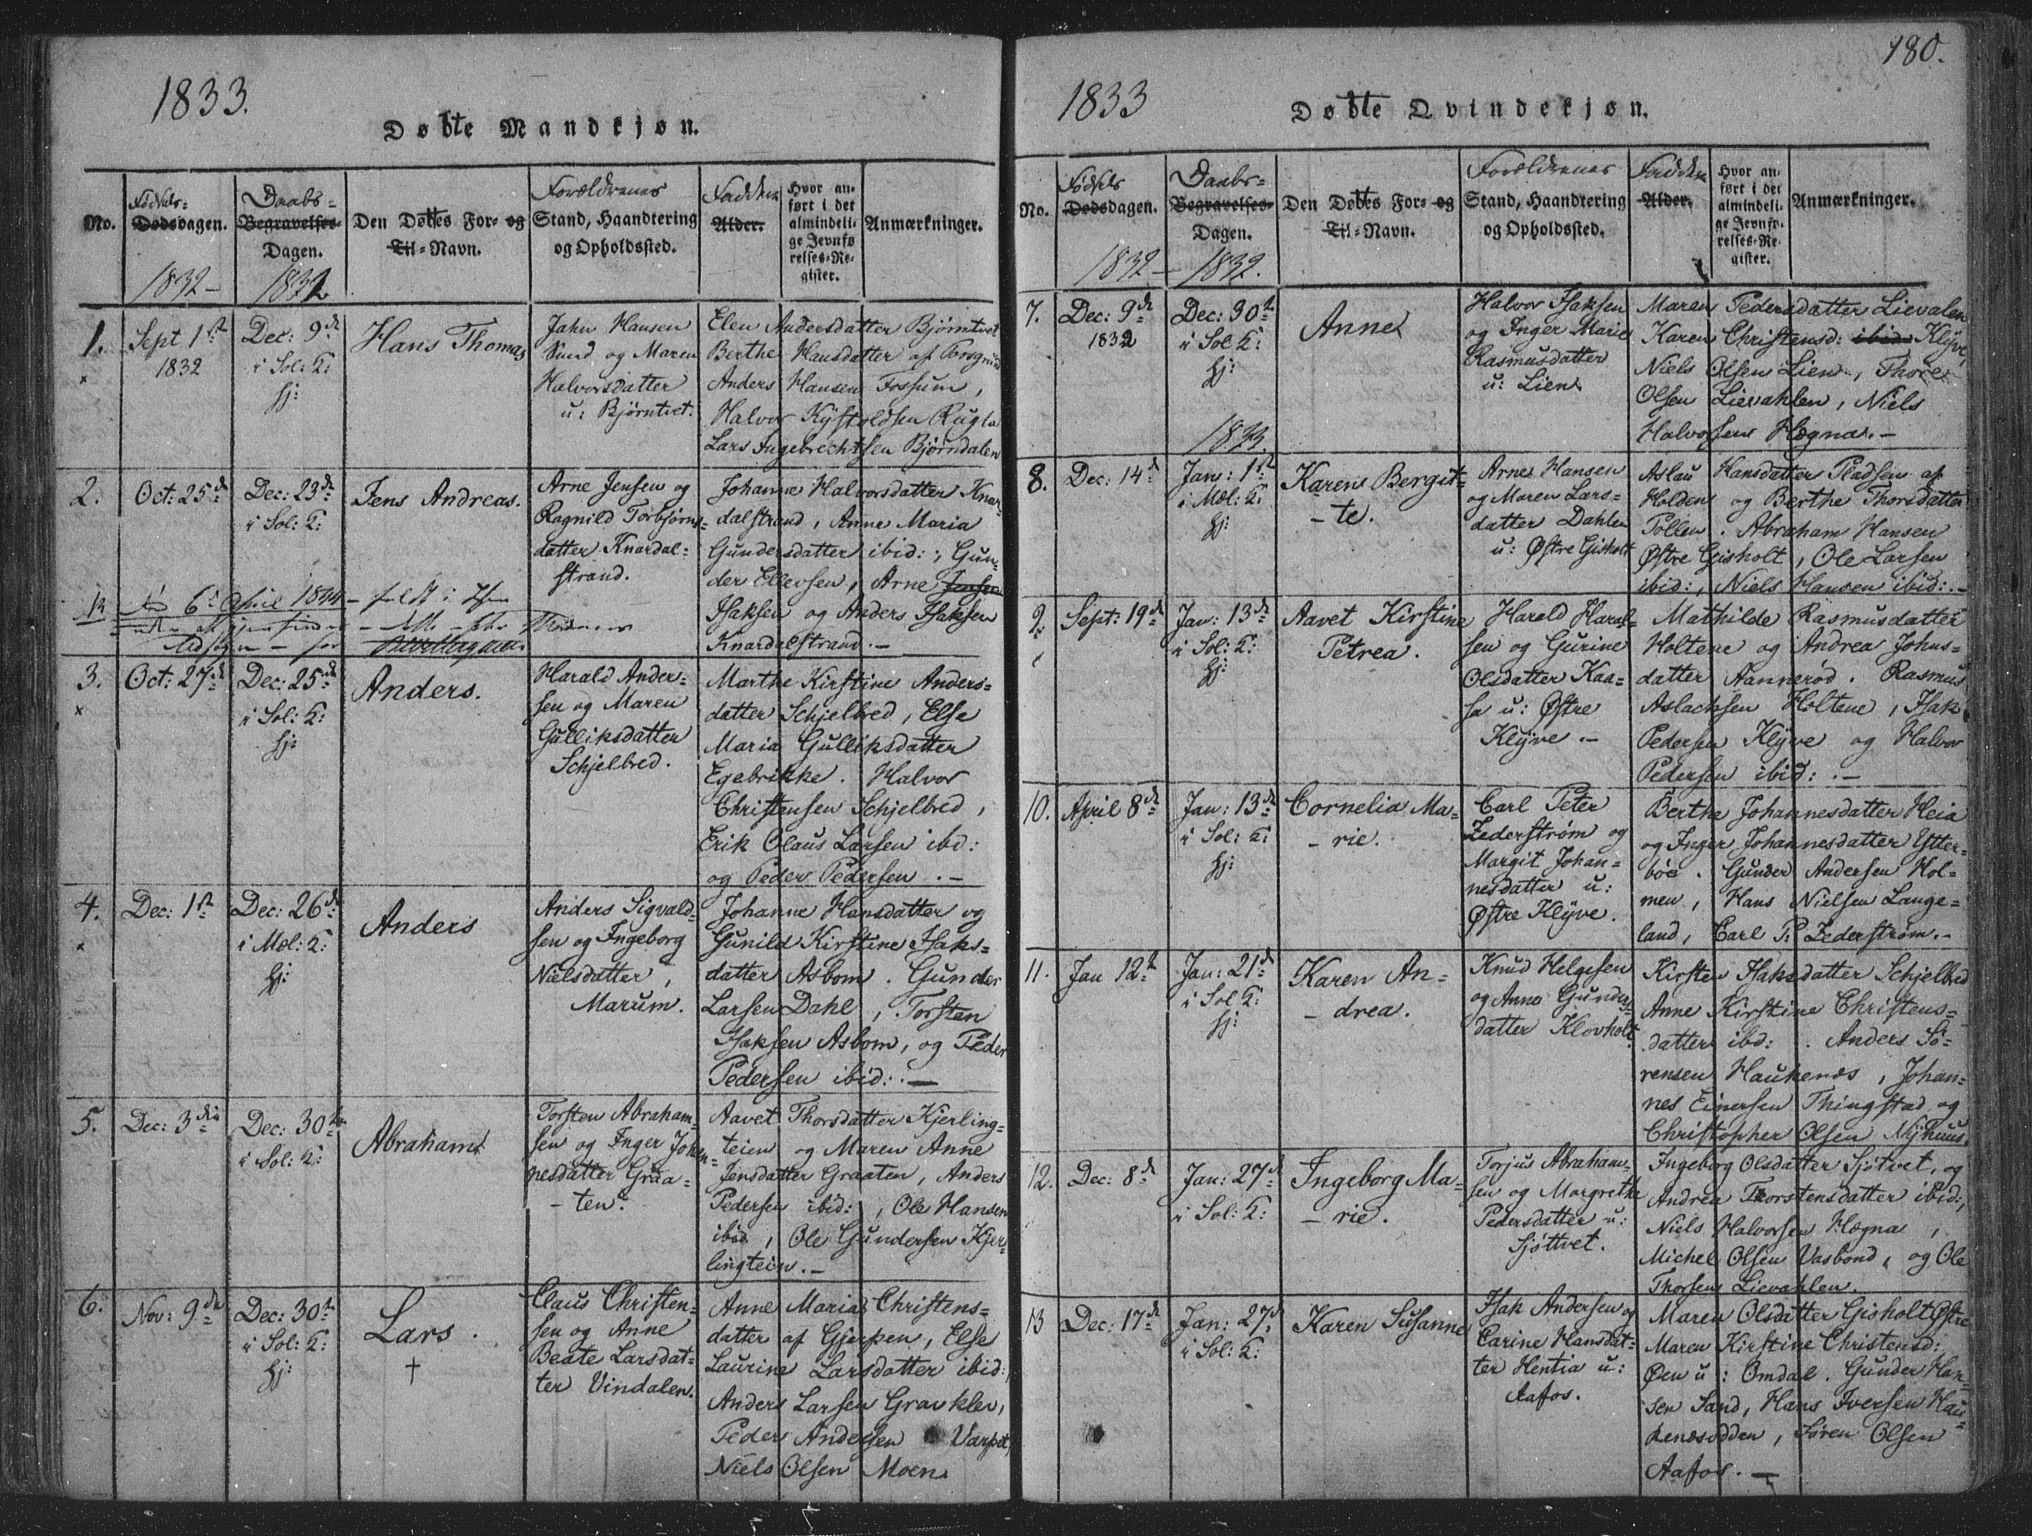 1833.
Døbte Mandkjøn.
No.
Fødsels-
Dødsdagen.
1832 -
Daabs-
Begravelses-
Dagen.
1832
Den Døbtes For- og
Til-Navn.
Forældrenes
Stand, Haandtering
og Opholdssted.
Fadderne
Alder.
Hvor an-
ført i det
almindeli-
ge Jevnfø
relses-Re-
gister.
Anmærkninger.
1.
Sept 1st
1832
Dec: 9de
i Sol: K:
hj:
Hans Thomas
Jahn Hansen
Sund og Maren
Halvorsdatter
u: Bjørntvet.
Elen Andersdatter Bjørntvet
Berthe Hansdatter af
Anders Hansen Fossum,
Halvor Kystoldsen Rugla
Lars Ingebrechtsen Bjørndalen
2.
Oct: 25de
Dec: 23de
i Sol: K:
Jens Andreas.
Arne Jensen og
Ragnild Torbjørns-
datter Knardal-
strand.
Johanne Halvorsdatter Knar-
dalstrand, Anne Maria
Gundersdatter ibid:, Gun-
der Ellevsen, Arne Jensen
Isaksen og Anders Isaksen
Knardalstrand. -
6 April 1834
3.
Oct: 27de
Dec: 25de
i Sol: K:
hj:
Anders.
Harald Ander-
sen og Maren
Gulliksdatter
Schjelbred.
Marthe Kirstine Anders-
datter Schjelbred, Else
Maria Gulliksdatter
Egebrikke. Halvor
Christensen Schjelbred,
Erik Olaus Larsen ibd:
og Peder Pedersen . -
4.
Dec: 1st
Dec: 26de
i Mæl: K:
hj:
Anders
Anders Sigvald-
sen og Ingeborg
Nielsdatter,
Marum.
Johanne Hansdatter og
Gunild Kirstine Isaks-
datter Asbom. Gunder
Larsen Dahl, Torsten
Isaksen Asbom, og Peder
Pedersen ibid: . -
5.
Dec: 3die
Dec: 30te
i Sol: K:
Abraham
Torsten Abraham-
sen og Inger Johan-
nesdatter Graa-
- ten.
Aavet Thorsdatter Kjerling-
teien og Maren Anne
Jensdatter Graaten, Anders
Pedersen ibid:, Ole Hansen
ibid, Ole Gundersen Kjer-
lingtein. -
6.
Nov: 9de
Dec: 30te
i Sol: K:
hj:
Lars.
†
Claus Christen-
sen og Anne
Beate Larsdat-
ter Vindalen.
Anne Maria Christens-
datter af Gjerpen, Else
Laurine Larsdatter ibid:
Anders Larsen Gravklev,
Peder Andersen Varpet,
Niels Olsen Moen
180.
1833
Døbte Qvindekjøn.
No.
Fødsels
Dødsdagen.
1832 -
Daabs-
Begravelses-
Dagen.
1832.
Den Døbtes For- og
Til-Navn.
Forældrenes
Stand, Haandtering
og Opholdssted.
Fadderne
Alder.
Hvor an-
ført i det
almindeli-
ge Jevnfø-
relses-Re-
gister.
Anmærkninger.
7.
Dec: 9de
1832
Dec: 30te
i Sol: K:
hj:
1833.
Anne
Halvor Isaksen
og Inger Marie
Rasmusdatter
u: Lien
Maren Pedersdatter Lievalen
Karen Christensd: ibid: Klyve,
Niels Olsen Lien, Thore
Olsen Lievahlen, Niels
Halvorsen Hægna. -
8.
Dec: 14de
Jan: 1st
i Mæl: K:
hj:
Karen Bergit-
- te.
Arne Hansen
og Maren Lars-
datter Dahlen
u: Østre Gisholt
Aslau Hansdatter Pladsen af
Holden og Berthe Thorsdatter
Pollen. Abraham Hansen
Østre Gisholt, Ole Larsen
ibid:, Niels Hansen ibid: . -
9
Sept: 19de
Jan: 13de
i Sol: K:
hj:
Aavet Kirstine
Petrea.
Harald Haral-
sen og Gurine
Olsdatter Kaa-
sa u: Østre
Klyve. -
Mathilde Rasmusdatter
Holtene og Andrea Johns-
datter Aannerød. Rasmus
Aslacksen Holtene, Isak
Pedersen Klyve og Halvor
Pedersen ibid: . -
10.
April 8de
Jan: 13de
i Sol: K:
hj:
Cornelia Ma-
- rie.
Carl Peter
Zederstrøm og
Margit Johan-
nesdatter u:
Østre Klyve.
Berthe Johannesdatter Heia
og Inger Johannesdatter Ytter-
bøe. Gunder Andersen Hol-
men, Hans Nielsen Lange-
land, Carl P: Zederstrøm. -
11.
Jan 12te
Jan: 21de
i Sol K:
hj:
Karen An-
- drea.
Knud Helgesen
og Anne Gunders-
datter Klovholt.
Kirsten Isaksdatter Schjelbred
Anne Kirstine Christens-
datter ibd: . Anders Sø-
rensen Haukenæs, Johan-
nes Einersen Thingstad og
Christopher Olsen Myhuus.
12.
Dec: 8de
Jan: 27de
i Sol: K:
Ingeborg Ma-
- rie.
Torjus Abraham-
sen og Margrethe
Pedersdatter u:
Sjøttvet.
Ingeborg Olsdatter Sjøtvet, og
Andrea Thorstensdatter ibid:,
Niels Halvorsen Hægna,
Michel Olsen Vasbond, og Ole
Thorsen Lievahlen.
13
Dec: 17de
Jan: 27de
i Sol: K:
Karen Susanne
Isak Andersen og
Carine Hansdat-
ter Hentia u:
Aafos.
Maren Olsdatter Gisholt Østre
Maren Kirstine Christensd:
Øen u: Omdal. Gunder Han-
sen Sand, Hans Iversen Hau-
kenæsodden, Søren Olsen
Aafos. -